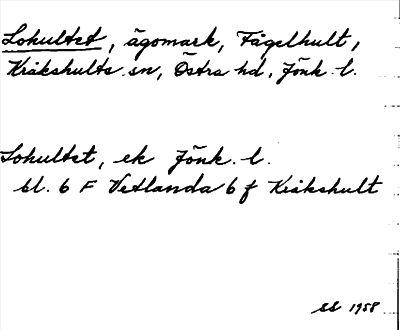 Lokultet, ägomark, Fågelhult,
Kråkshults sn, Östra hd, Jönk. l.
Lokultet, ek Jönk. l.
bl. 6 F Vetlanda 6 f Kråkshult
SS 1958